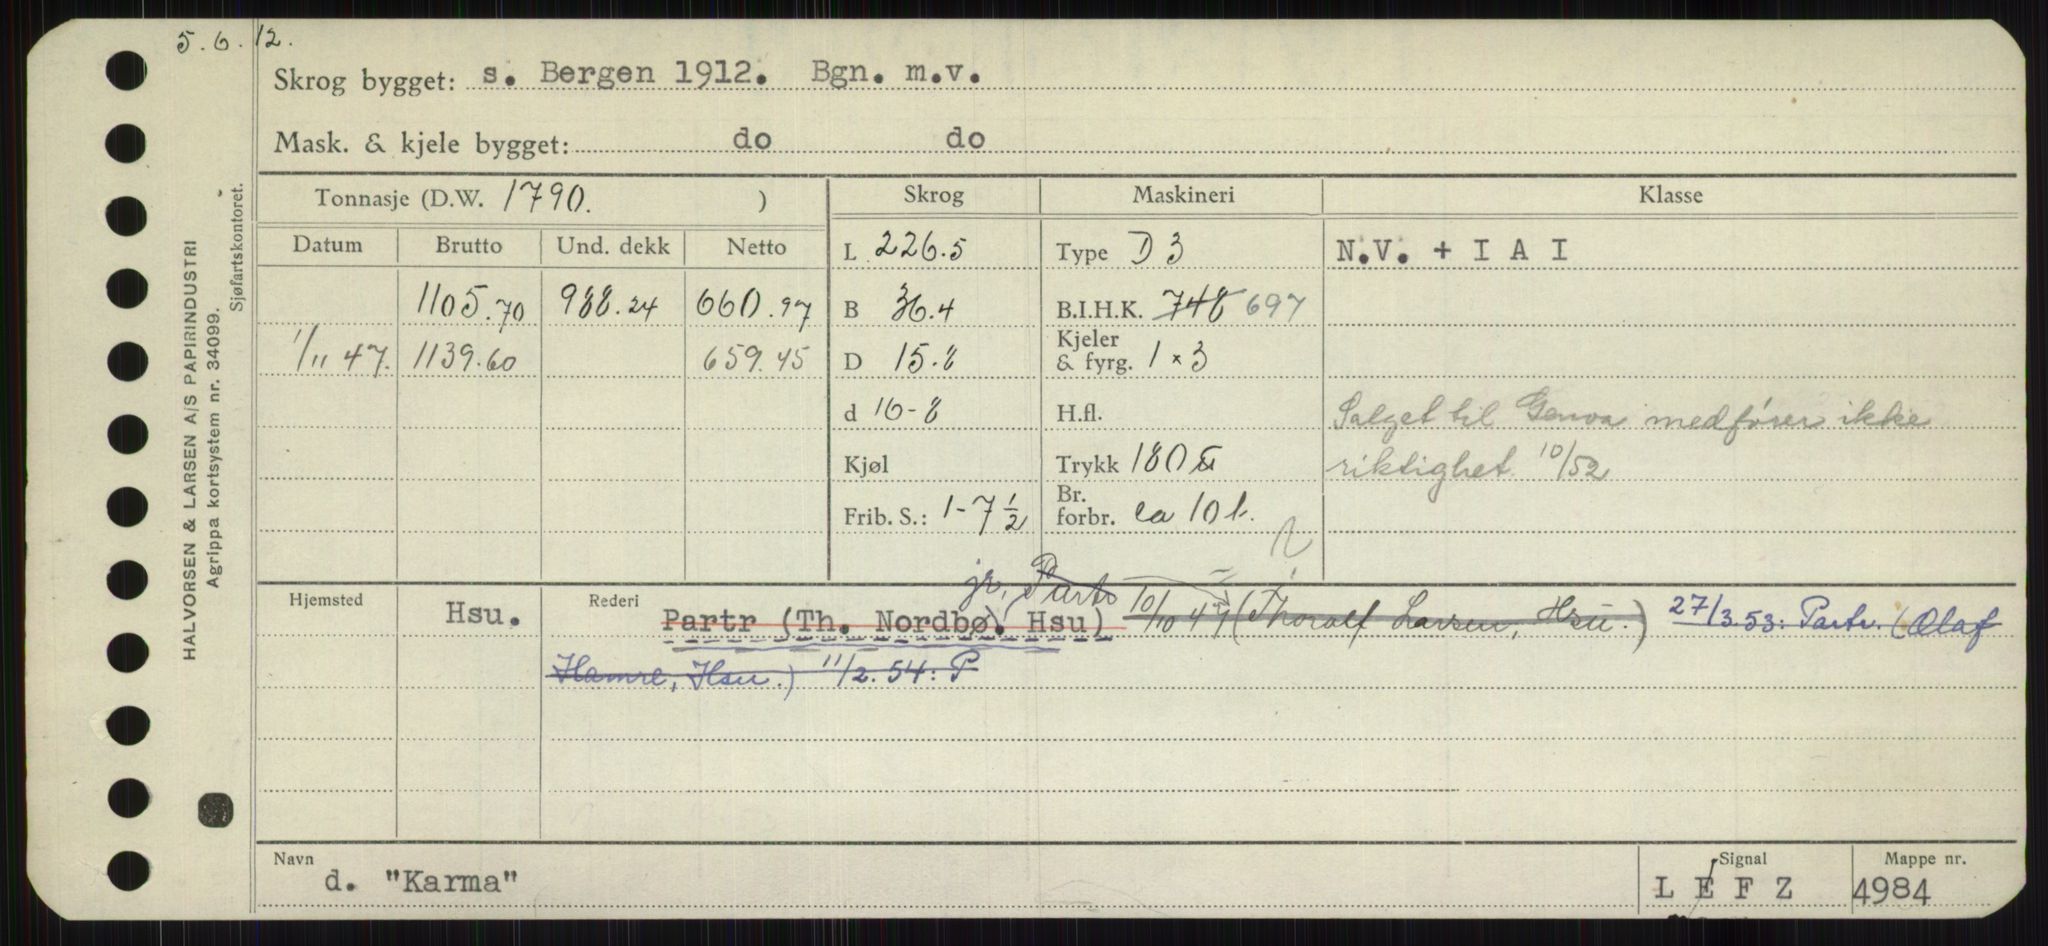 5.6.12.
Skrog bygget: s. Bergen 1912. Bgn. m.v.
Mask. & kjele bygget: do do
Tonnasje (D.W. 1790. ) Skrog Maskineri Klasse
Datum Brutto Und. dekk Netto L 226.5 Type D 3 N.V. + I A I
1105.70 988.24 660.97 B 36.4 B.I.H.K. 748 697
1/11 47. 1139.60 659.45 D 15.8 Kjeler & fyrg. 1 x 3
d 16-8 H.fl. Salget til Genova medfører ikke
Kjøl Trykk 180 riktighet 10/52
Frib. S.: 1-7 1/2 Br. forbr. ca 10 t.
jr, Partr
Hjemsted Hsu. Rederi Partr (Th. Nordbø. Hsu) 10/10 47 (Thoralf Larsen, Hsu.) 27/3.53: Partr. (Olaf
Hamre, Hsu.) 11/2.54: P
Navn d. "Karma" Signal L E F Z Mappe nr. 4984
HALVORSEN & LARSEN A/S PAPIRINDUSTRI
Agrippa kortsystem nr. 34099.
Sjøfartskontoret.